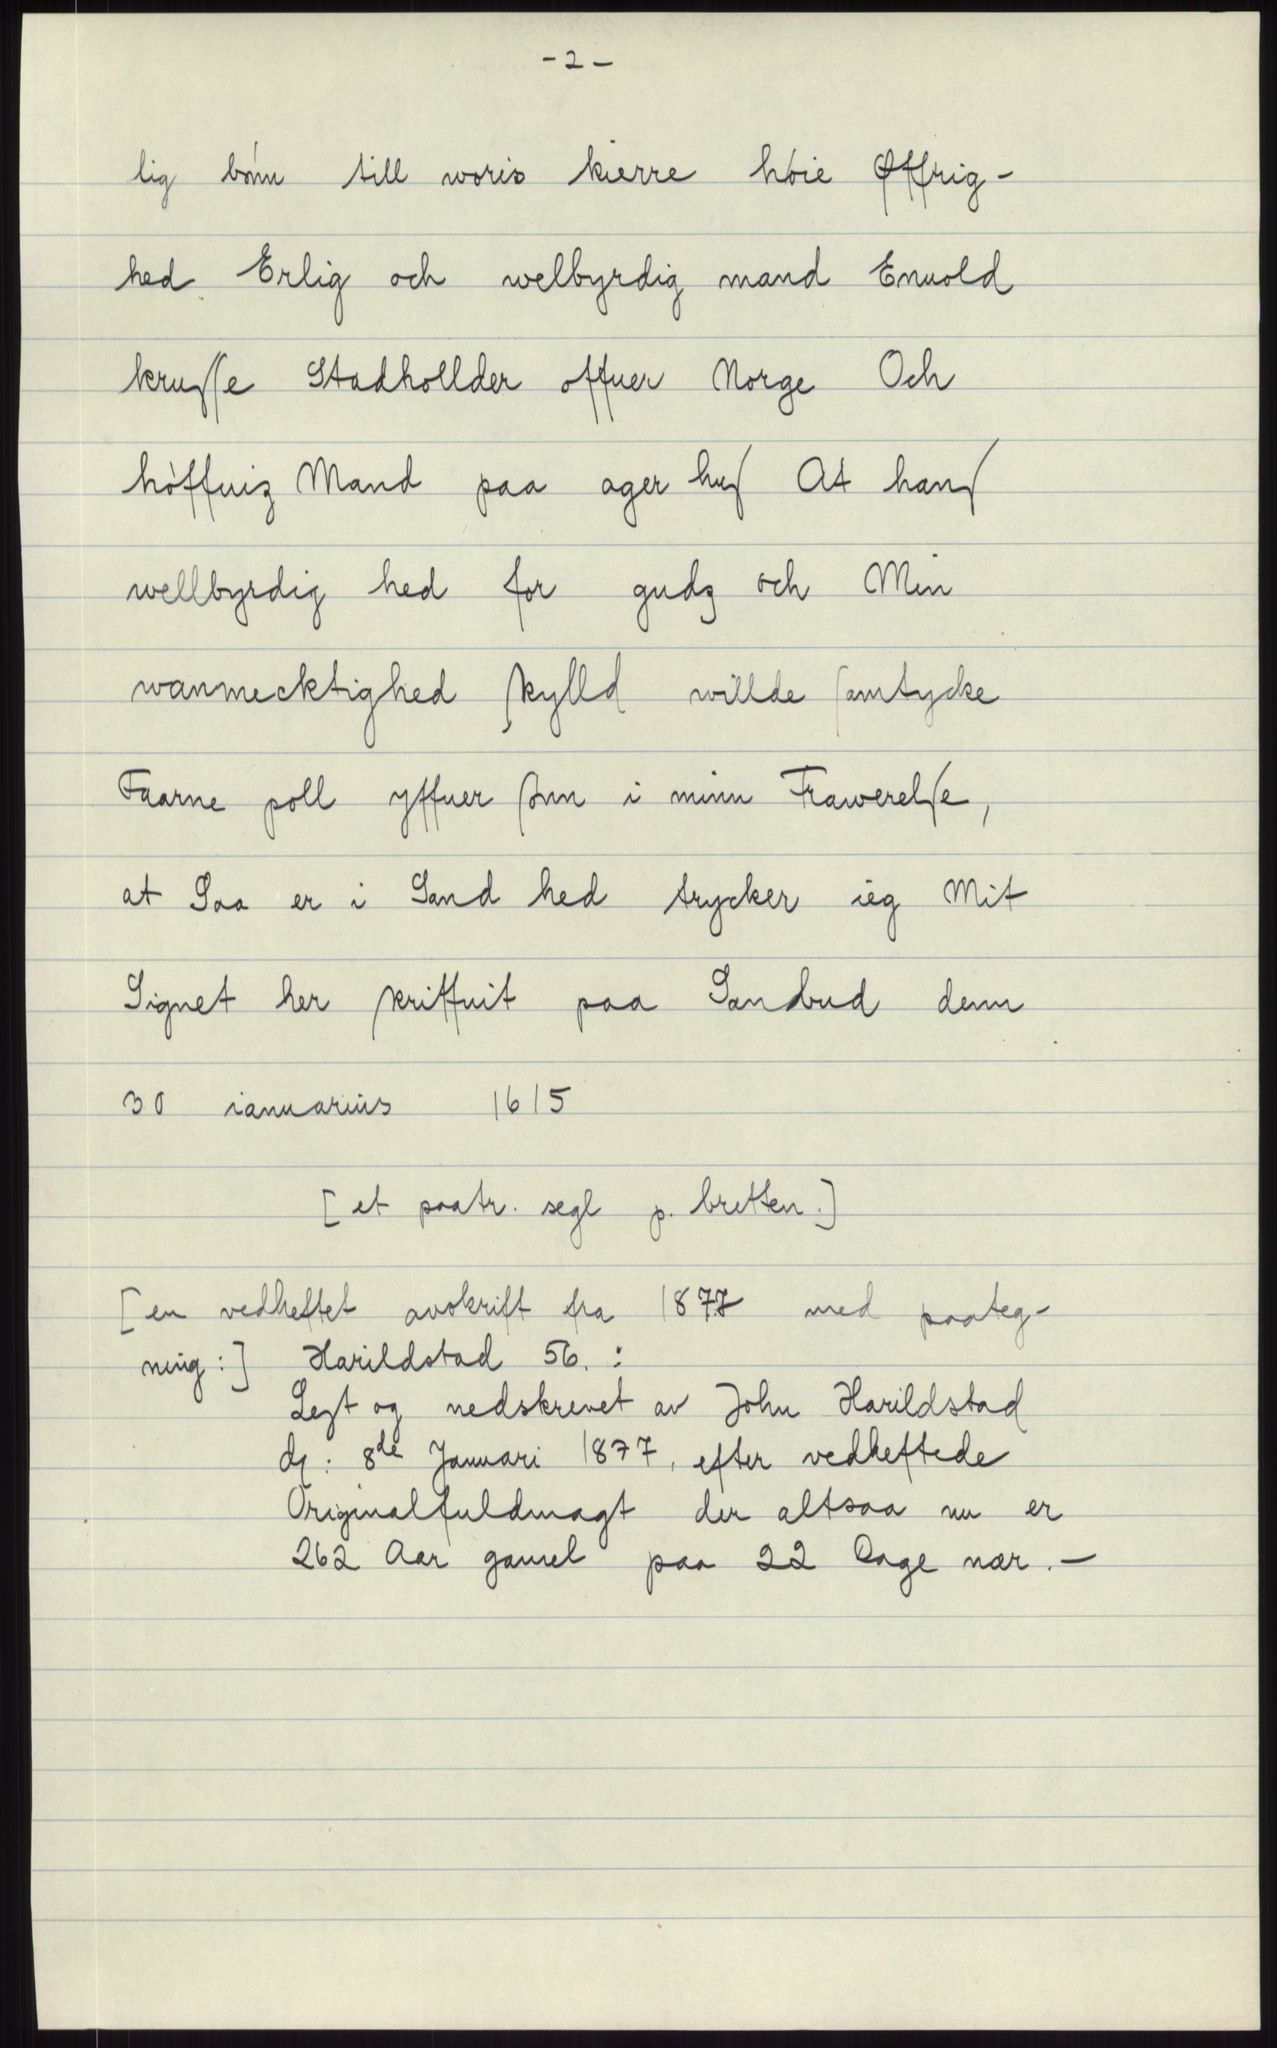 - 2 -
lig bónn till woris kierre hóie Øffrig-
hed Erlig och welbyrdig mand Enuold
kruſſe Stadhollder offuer Norge Och
hóffuiz Mand paa ager huſ At hanſ
wellbyrdig hed for gudz och Min
wanmecktighed ſkylld willde ſamtycke
Faarne poll yffuer ſønn i minn Frawerelſe,
at Saa er i Sand hed trycker ieg Mit
Signet her ſkriffuit paa Sandbud denn
30 ianuarius 1615
[et paatr. segl p. bretten.]
[en vedheftet avskrift fra 1877 med paateg-
ning:] Harildstad 56. :
Lezt og nedskrevet av John Harildstad
d: 8de Januari 1877, efter vedheftede
Originalfuldmagt der altsaa nu er
262 Aar gamel paa 22 Dage nær. -